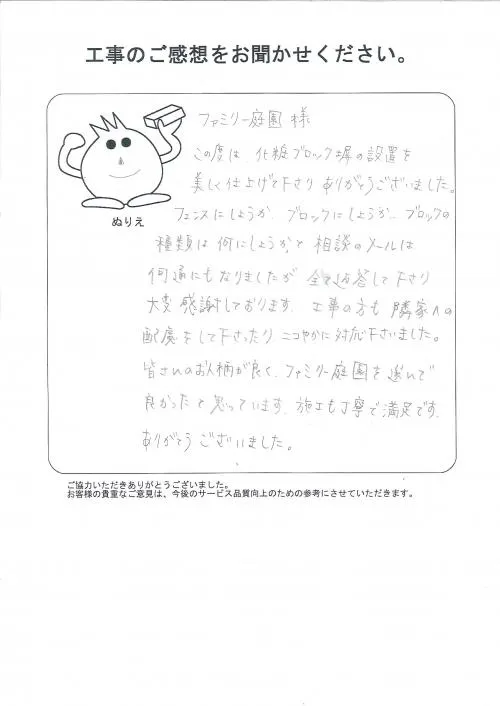 工事のご感想をお聞かせください。
ファミリー庭園 様
この度は、化粧ブロック塀の設置を
美しく仕上げて下さり ありがとうございました。
フェンスにしようか、ブロックにしようか、ブロックの
種類は何にしようか、と 相談のメールは
何通にもなりましたが 全て返答して下さり
大変感謝しております。工事の方も 隣家への
配慮をして下さったり ニコやかに対応下さいました。
皆さんのお人柄が良く、ファミリー庭園を選んで
良かったと思っています。施工も丁寧で満足です。
ありがとうございました。
ぬりえ
ご協力いただきありがとうございました。
お客様の貴重なご意見は、今後のサービス品質向上のための参考にさせていただきます。